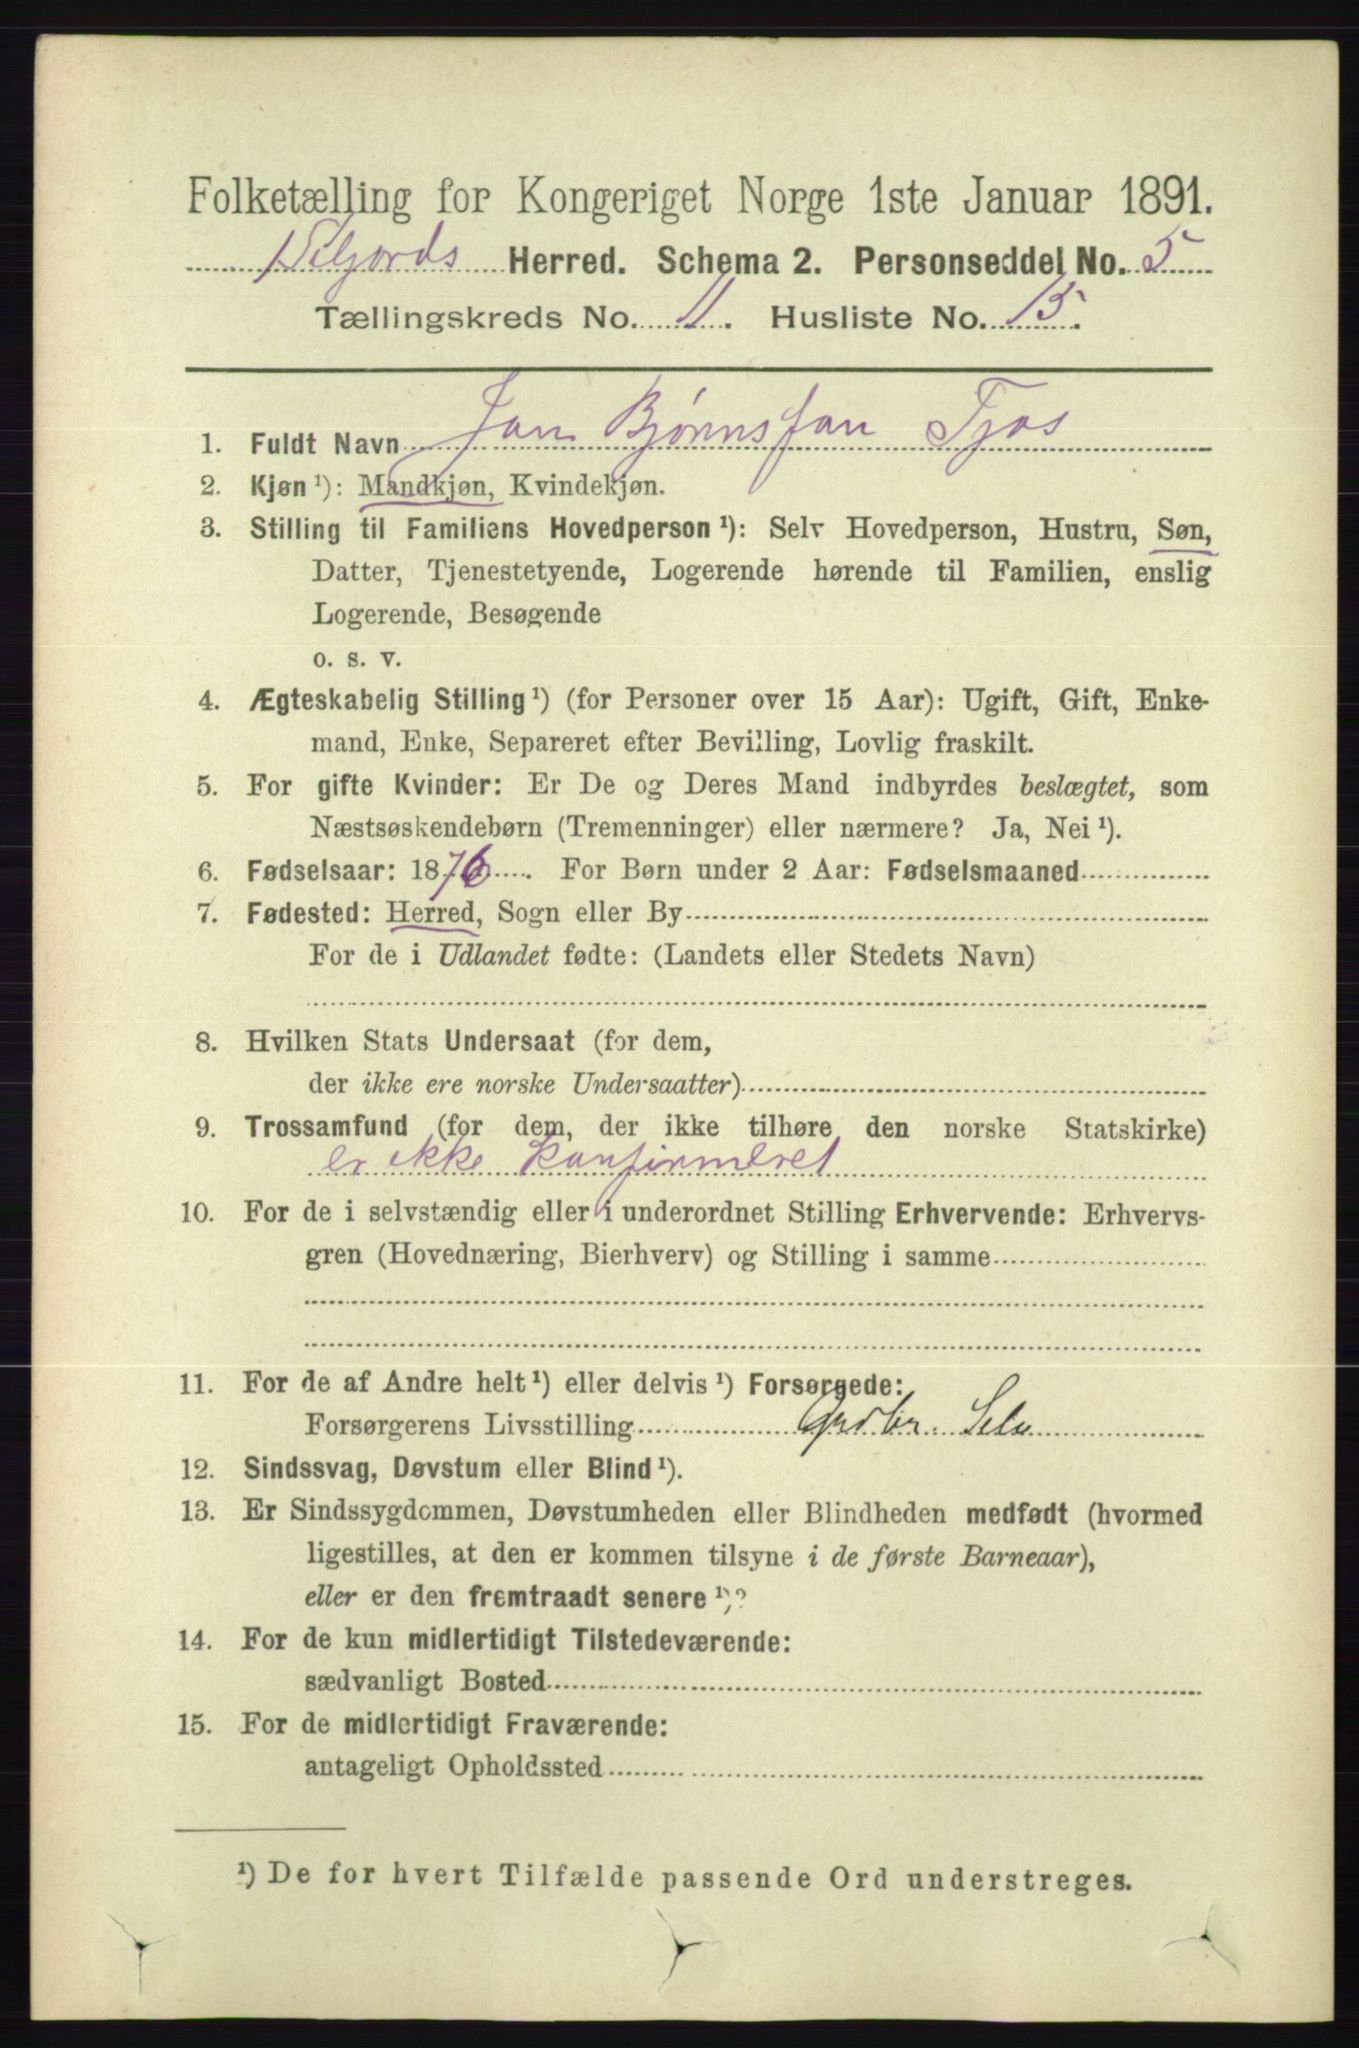 Folketælling for Kongeriget Norge 1ste Januar 1891.
Seljords Herred. Schema 2. Personseddel No. 5
Tællingskreds No. 11. Husliste No. 15.
1. Fuldt Navn Jon Bjønnsson Tjos
2. Kjøn¹): Mandkjøn, Kvindekjøn.
3. Stilling til Familiens Hovedperson¹): Selv Hovedperson, Hustru, Søn,
Datter, Tjenestetyende, Logerende hørende til Familien, enslig
Logerende, Besøgende
o. s. v.
4. Ægteskabelig Stilling¹) (for Personer over 15 Aar): Ugift, Gift, Enke-
mand, Enke, Separeret efter Bevilling, Lovlig fraskilt.
5. For gifte Kvinder: Er De og Deres Mand indbyrdes beslægtet, som
Næstsøskendebørn (Tremenninger) eller nærmere? Ja, Nei¹).
6. Fødselsaar: 1876. For Børn under 2 Aar: Fødselsmaaned
7. Fødested: Herred, Sogn eller By
For de i Udlandet fødte: (Landets eller Stedets Navn)
8. Hvilken Stats Undersaat (for dem,
der ikke ere norske Undersaatter)
9. Trossamfund (for dem, der ikke tilhøre den norske Statskirke)
er ikke konfirmeret
10. For de i selvstændig eller i underordnet Stilling Erhvervende: Erhvervs-
gren (Hovednæring, Bierhverv) og Stilling i samme
11. For de af Andre helt¹) eller delvis¹) Forsørgede:
Forsørgerens Livsstilling Grdbr. Selv
12. Sindssvag, Døvstum eller Blind¹).
13. Er Sindssygdommen, Døvstumheden eller Blindheden medfødt (hvormed
ligestilles, at den er kommen tilsyne i de første Barneaar),
eller er den fremtraadt senere¹)?
14. For de kun midlertidigt Tilstedeværende:
sædvanligt Bosted
15. For de midlertidigt Fraværende:
antageligt Opholdssted
¹) De for hvert Tilfælde passende Ord understreges.